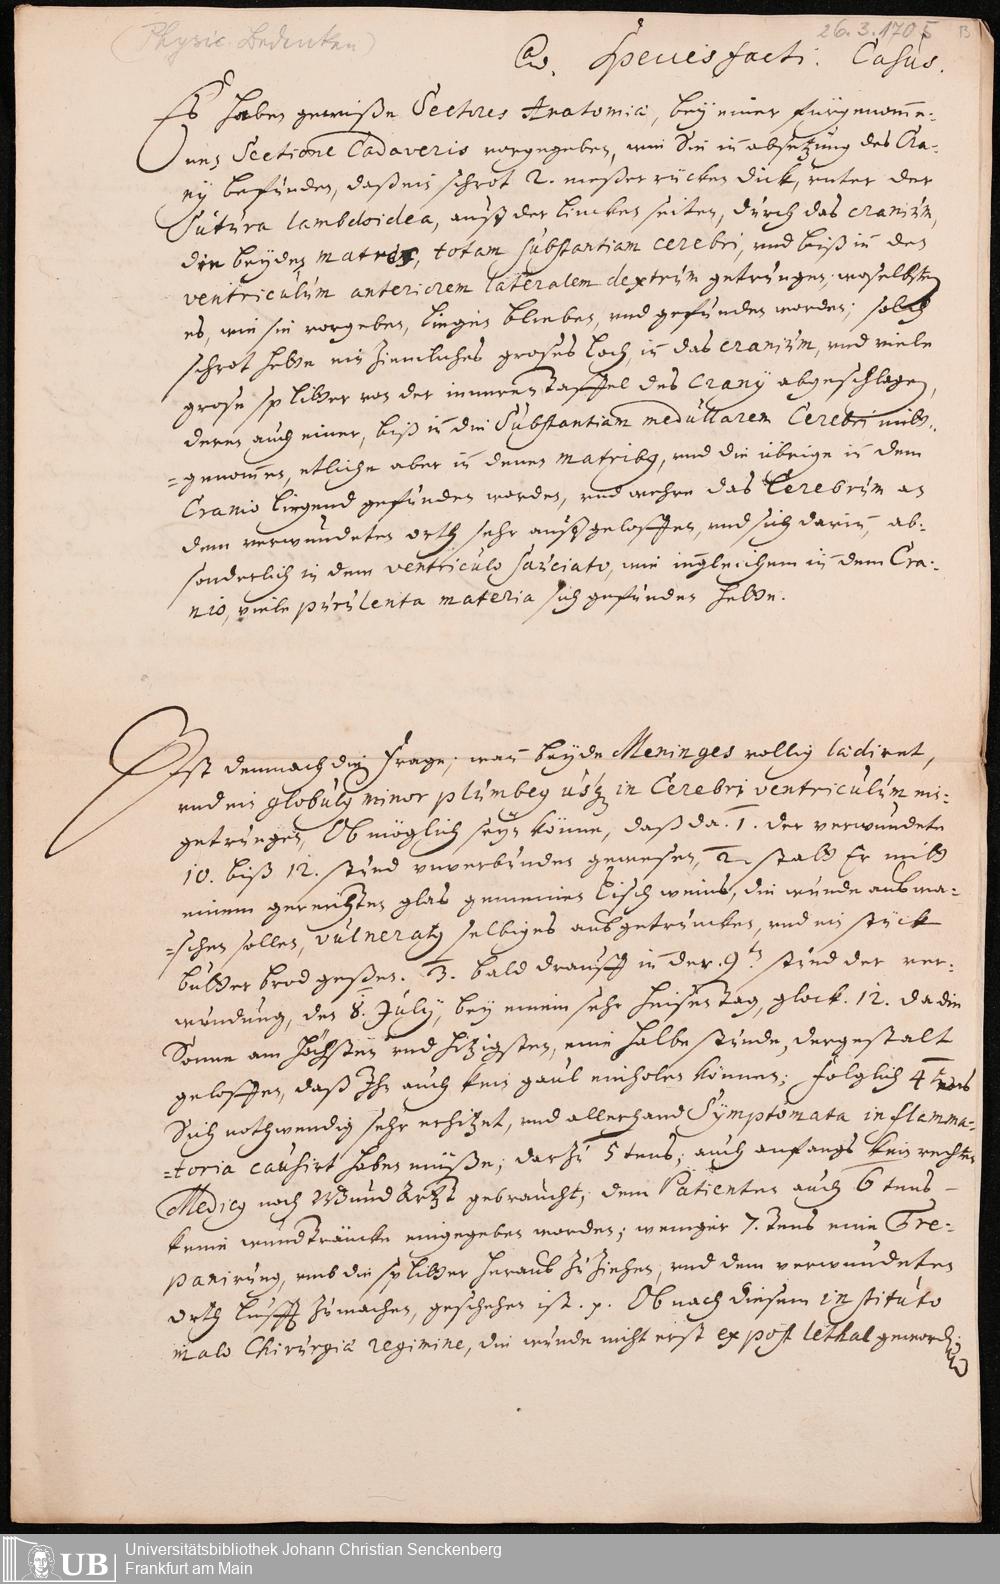 (Physic. Bedencken)
26.3.1705
B
Species facti. Casus.
Es haben gewiße Sectores Anatomiæ, bey einer fürgenom̄e-
nen Sectione Cadaveris vorgegeben, wie Sie in absetzung des Cra-
nÿ befunden, daß ein schrot 2. meßer rücken dick, unter der
Sutura lambdoidea, auß der lincken seiten, durch das cranium,
die beyden matres, totam substantiam cerebri, und biß in den
ventriculum anteriorem lateralem dextrum getrungen, woselbsten
es, wie sie vorgeben, liegen blieben, und gefunden worden; solch
schrot hette ein ziemliches großes loch, in das cranium, und viele
große splitter von der inneren taffel des Cranÿ abgeschlagen,
deren auch einer, biß in die Substantiam medullarem Cerebri mitt-
-genom̄en, etliche aber in denen matribq, und die übrige in dem
Cranio liegend gefunden worden, und wehre das Cerebrum an
dem verwundeten orth sehr außgeloffen, und sich darin, ab-
sonderlich in dem ventriculo sauciato, wie ingleichem in dem Cra-
nio, viele purulenta materia sich gefunden hette.
Ist demnach die Frage, wan̄ beyde Meninges vollig lädiret,
und ein globulq minor plumbeq usq in Cerebri ventriculum ein-
getrungen, Ob möglich seyn könne, daß da. 1. der verwundete
10. biß 12. stund unverbunden gewesen, 2. statt Er mitt
einem gereichten glas gemeinen tisch weins, die wunde auswa-
-schen sollen, vulneratq selbiges ausgetruncken, und ein stück
butter brod geßen. 3. bald drauff in der 9.t stund der ver-
wundung, den 8. July, bey einem sehr heisen tag, glock. 12. da die
Sonne am höchsten und hitzigsten, eine halbe stunde, dergestalt
geloffen, daß Ihn auch kein gaul einholen können; folglich 4tens
Sich nothwendig sehr erhitzet, und allerhand Symptomata inflamma-
-toria causirt haben müße; darzu 5tens, auch anfangs kein rechter
Medicq noch Wund Artzt gebraucht, dem Patienten auch 6tens
keine wundträncke eingegeben worden; weniger 7.tens eine Tre-
panirung, umb die splitter heraus zu ziehen, und dem verwundeten
orth lufft zu machen, geschehen ist. p. Ob nach diesem instituto
malo Chirurgiæ regimine, die wunde nicht erst ex post lethal geworden
UB
Universitätsbibliothek Johann Christian Senckenberg
Frankfurt am Main